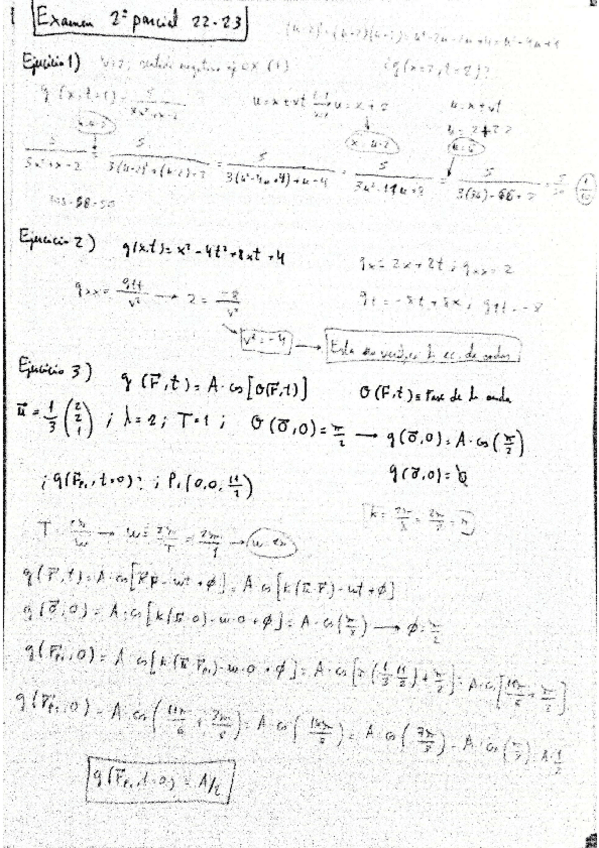 Examen 2º parcial 22-23
Ejercicio 1) v=2; sentido negativo eje OX (+) ¿g(x=2, t=2)?
g(x,t=1) = 5/(3x²+x-2) u = x+vt → u = x+2 u = x+vt
x = u-2
5/(3x²+x-2) = 5/(3(u-2)²+(u-2)-2) = 5/(3(u²-4u+4)+u-4) = 5/(3u²-11u+8) =
Ejercicio 2) g(x,t) = x²-4t²+8xt+4 gx = 2x+8t ; gxx = 2
gxx = gtt/v² → 2 = -8/v² gt = -8t+8x, gtt = -8
v² = -4 → Esta no verifica la ec. de ondas
Ejercicio 3) g(r̄,t) = A·cos[θ(r̄,t)] θ(r̄,t) ≡ Fase de la onda
ū = 1/3 (2 2 1) ; λ=2 ; T=1 ; θ(ō,0) = π/2 → g(ō,0) = A·cos(π/2)
g(ō,0) = 0
¿g(r̄p₁, t=0)? ; P₁(0,0,11/2)
k = 2π/λ = 2π/2 = π
T = 2π/w → w = 2π/T = 2π/1 → w = 2π
g(r̄,t) = A cos[k̄·r̄ - wt + φ] = A cos[k(ū·r̄) - wt + φ]
g(ō,0) = A·cos[k(ū·0) - w·0 + φ] = A·cos(π/2) → φ = π/2
g(r̄p₁,0) = A·cos[k(ū·r̄p₁) - w·0 + φ] = A·cos[π(1/3 11/2) + π/2] = A·cos[11π/6 + π/2]
g(r̄p₁,0) = A·cos(11π/6 + 3π/6) = A·cos(14π/6) = A cos(7π/3) = A·cos(π/3) = A·1/2
g(r̄p₁, t=0) = A/2